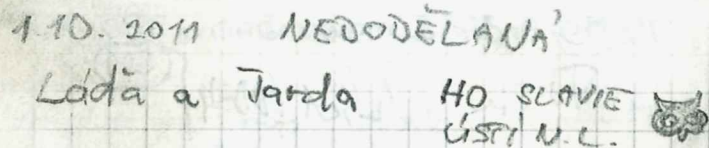 1.10. 2011 NEDODĚLANÁ
Láďa a Jarda HO SLAVIE
ÚSTÍ N.L.